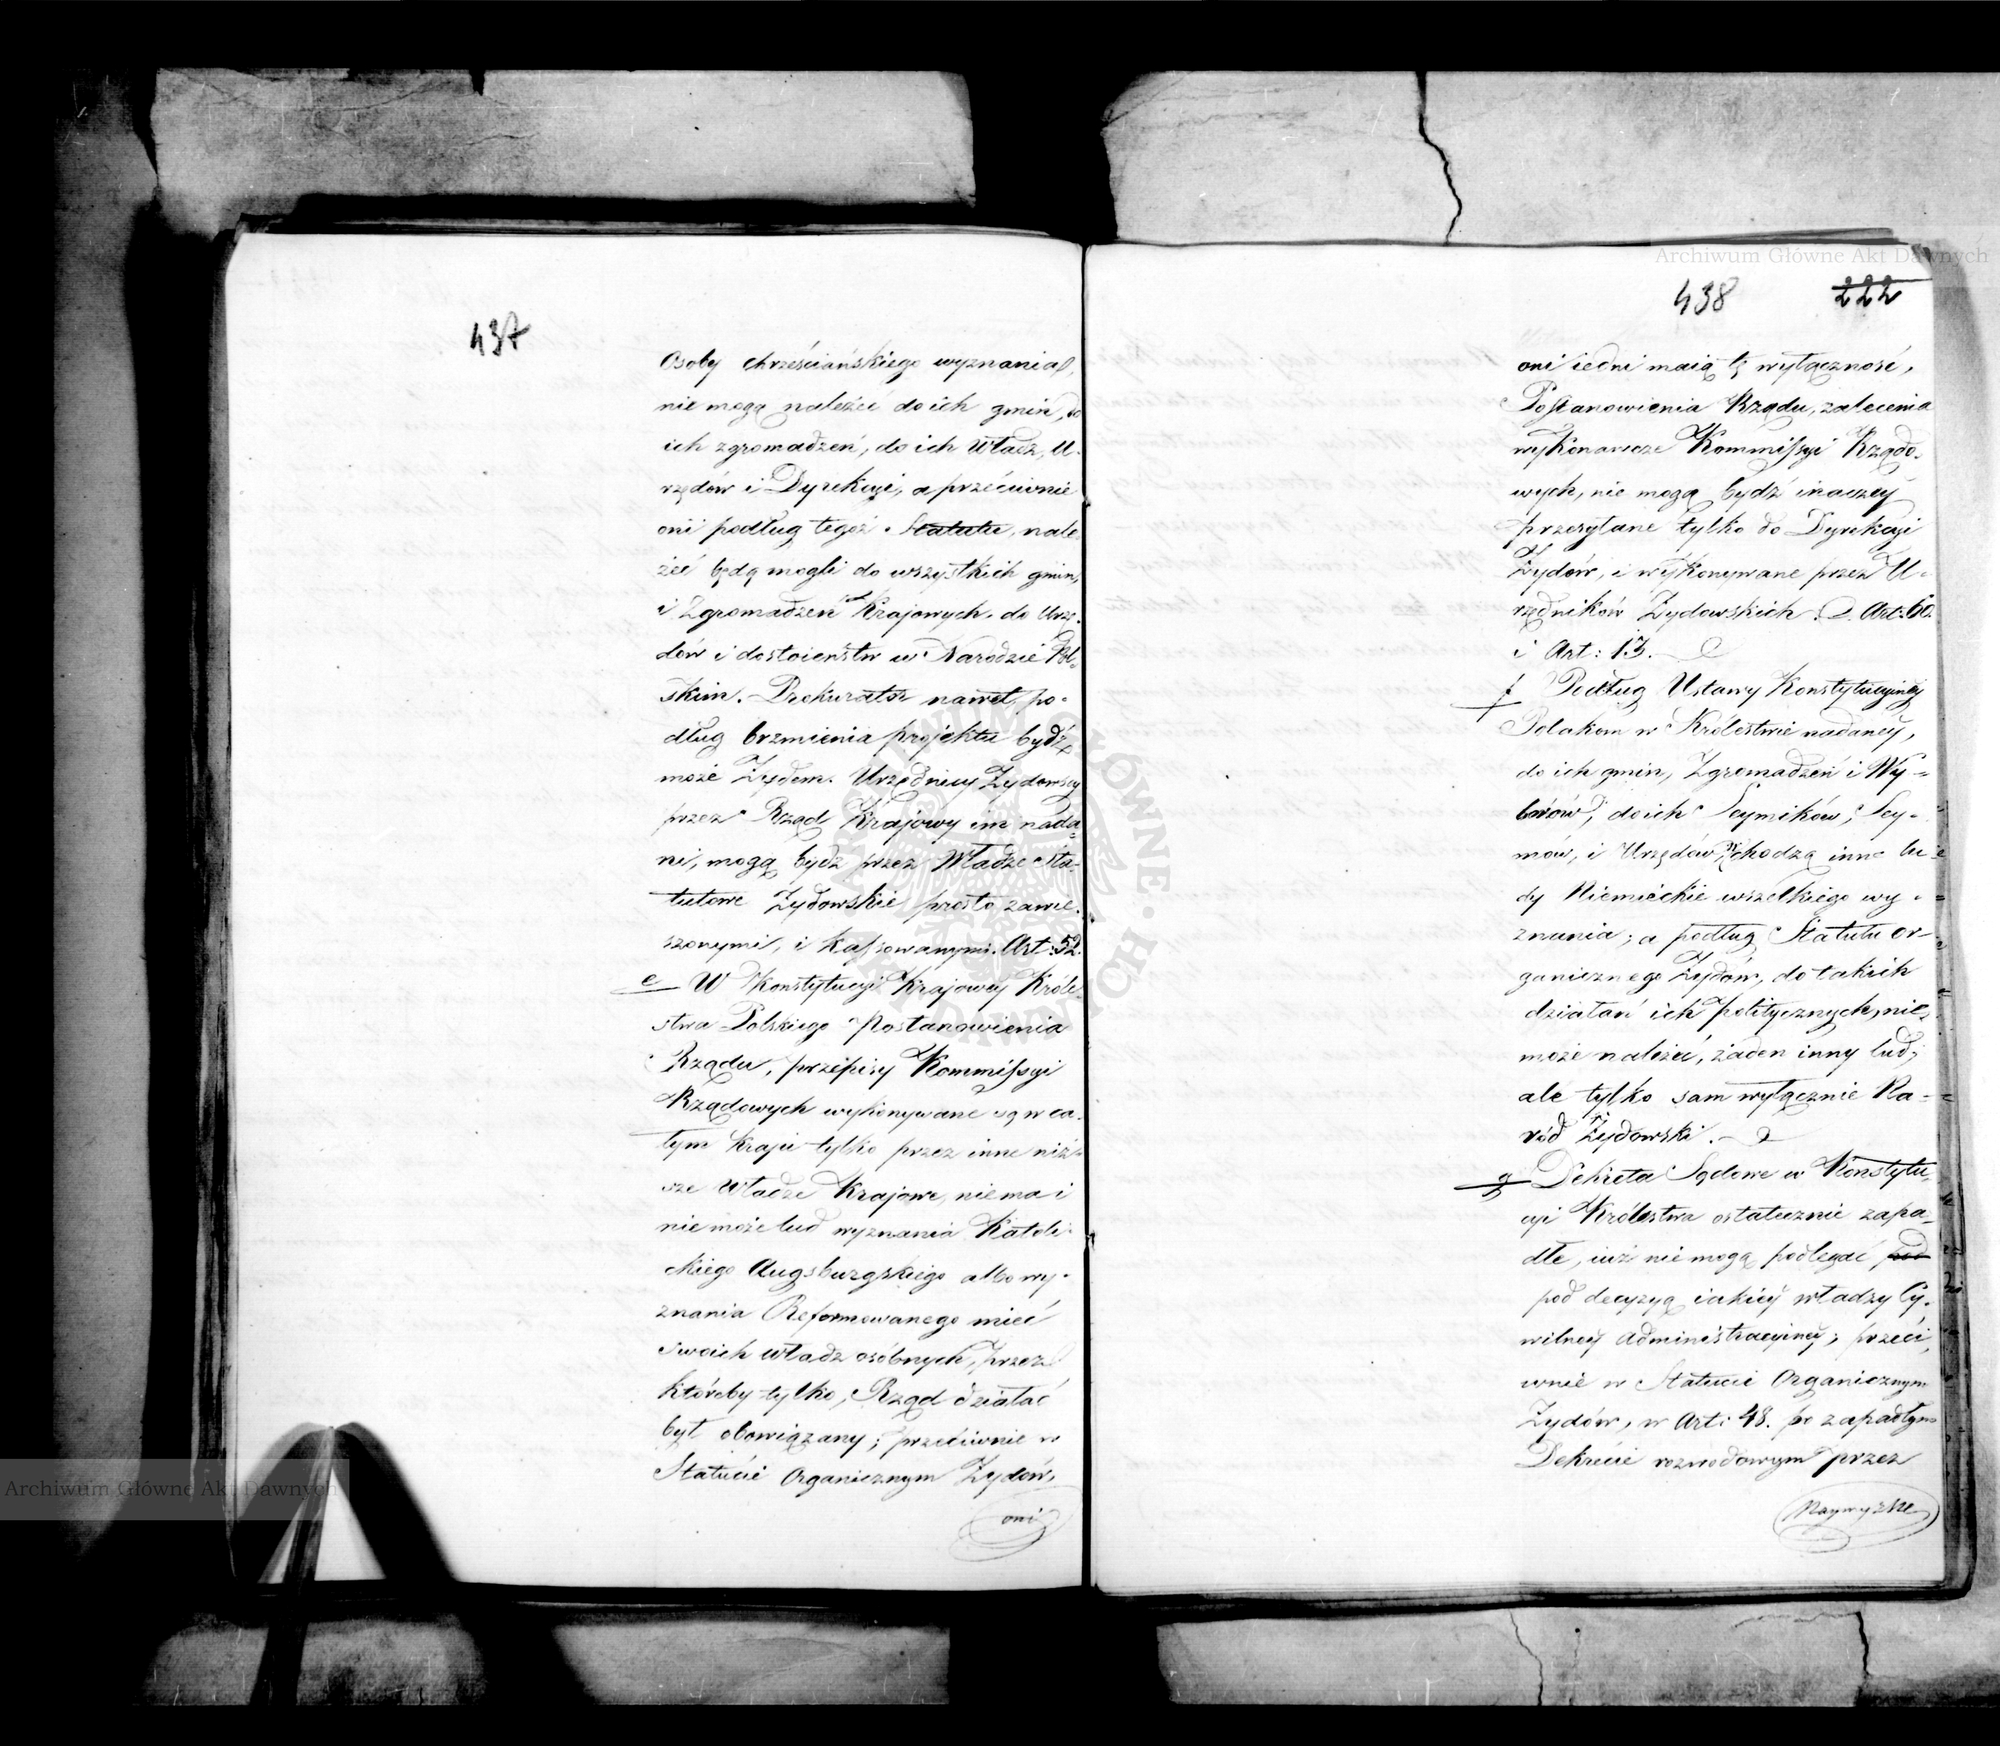 437
Osoby chrześciańskiego wyznania,
nie mogą należeć do ich gmin, do
ich zgromadzeń, do ich Władz, U-
rzędów i Dyrekcyi, a przeciwnie
oni podług tegoż Statutu, nale
żeć będą mogli do wszystkich gmin,
i Zgromadzeń Krajowych, do Urzę-
dów i dostoieństw w Narodzie Pol-
skim. Prokurator nawet, po-
dług brzmienia projektu bydź
może Żydem. Urzędnicy Żydowscy
przez Rząd Krajowy im nada-
ni, mogą bydź przez Władze Sta-
tutowe Żydowskie prosto zawie-
szonymi, i kassowanymi. Art: 52.
e W Konstytucyi Krajowey Króle-
stwa Polskiego Postanowienia
Rządu, przepisy Kommissyi
Rządowych wykonywane są w ca-
łym kraju tylko przez inne niż-
sze Władze Krajowe, nie ma i
nie może lud wyznania Katoli-
ckiego Augsburgskiego albo wy-
znania Reformowanego mieć
swoich władz osóbnych, przez
któreby tylko, Rząd działać
był obowiązany; przeciwnie w
Statucie Organicznym Żydów,
oni
438 222
oni iedni maią tę wyłączność,
Postanowienia Rządu, zalecenia
wykonawcze Kommissyi Rządo-
wych, nie mogą bydź inaczey
przesyłane tylko do Dyrekcyi
Żydów, i wykonywane przez U-
rzędników Żydowskich. Art: 60.
i Art: 13.
f Podług Ustawy Konstytucyiney
Polakom w Królestwie nadaney,
do ich gmin, Zgromadzeń i Wy-
borów, do ich Seymików, Sey-
mów, i Urzędów wchodzą inne lu-
dy Niemieckie wszelkiego wy-
znania; a podług Statutu or-
ganicznego Żydów, do takich
działań ich politycznych, nie
może należeć, żaden inny lud,
ale tylko sam wyłącznie Na-
ród Żydowski.
g Dekreta Sądowe w Konstytu-
cyi Królestwa ostatecznie zapa-
dłe, iuż nie mogą podlegać pod
pod decyzyą iakiey władzy Cy-
wilney Administracyiney; przeci-
wnie w Statucie Organicznym
Żydów, w Art: 48. po zapadłym
Dekrecie rozwodowym przez
Naywyższe
Archiwum Główne Akt Dawnych
Archiwum Główne Akt Dawnych